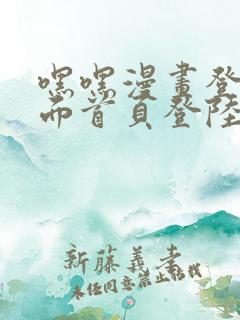 嘿嘿漫畫登
而首頁登陸
新藤義孝
未經同意禁止轉載